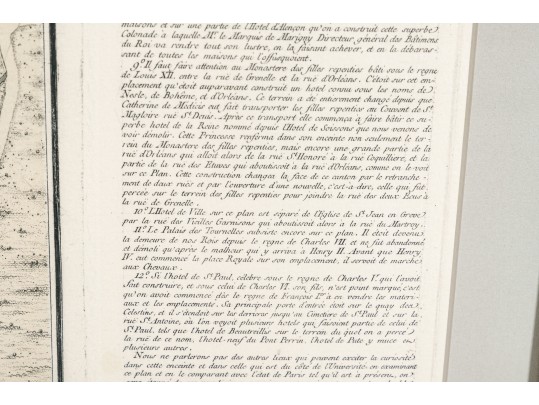 maisons et sur une partie de l'Hotel d'Alençon qu'on a construit cette superbe
Colonade à laquelle Mr. le Marquis de Marigny Directeur général des Bâtimens
du Roi va rendre tout son lustre, en la faisant achever, et en la débaras-
sant de toutes les maisons qui l'offusquoient.
9°. Il faut faire attention au Monastere des filles repenties bâti sous le regne
de Louis XII, entre la rue de Grenelle et la rue d'Orléans. C'étoit sur cet em-
placement qu'étoit auparavant construit un hotel connu sous les noms de
Nesle, de Bohême, et d'Orléans. Ce terrein a été entierement changé depuis que
Catherine de Médicis eut fait transporter les filles repenties au Couvent de St.
Magloire rue St. Denis. Après ce transport elle commença à faire bâtir ce su-
perbe hotel de la Reine nommé depuis l'Hotel de Soissons que nous venons de
voir démolir. Cette Princesse renferma dans son enceinte non seulement le ter-
rein du Monastere des filles repenties, mais encore une grande partie de la
rue d'Orléans qui alloit alors de la rue St. Honoré à la rue Coquilliere, et la
partie de la rue des Etuves qui aboutissoit à la rue d'Orléans, comme on le voit
sur ce Plan. Cette construction changea la face de ce canton par le retranche-
ment de deux rues et par l'ouverture d'une nouvelle, c'est-à-dire, celle qui fut
percée sur le terrein des filles repenties pour joindre la rue des deux Ecus à
la rue de Grenelle.
10°. L'Hotel de Ville sur ce plan est séparé de l'Eglise de St. Jean en Greve
par la rue des Vieilles Garnisons qui aboutissoit alors à la rue du Martroy.
11°. Le Palais des Tournelles subsiste encore sur ce plan. Il étoit devenu
la demeure de nos Rois depuis le regne de Charles VII. et ne fut abandonné
et démoli qu'après le malheur qui y arriva à Henry II. Avant que Henry
IV. eut commencé la place Royale sur son emplacement, il servoit de marché
aux Chevaux.
12°. Si l'hotel de St. Paul, célebre sous le regne de Charles V. qui l'avoit
fait construire, et sous celui de Charles VI. son fils, n'est point marqué, c'est
qu'on avoit commencé dès le regne de François Ier. à en vendre les materi-
aux et les emplacements. Sa principale porte d'entrée étoit sur le quay des
Célestins, et il s'étendoit sur les derrieres jusqu'au Cimetiere de St. Paul et sur la
rue St. Antoine, où l'on voyoit plusieurs hotels qui faisoient partie de celui de
St. Paul, tels que l'hotel de Beautreillis sur le terrein du quel on a percé
la rue de ce nom, l'hotel-neuf du Pont Perrin, l'hotel de Pute y muce et
plusieurs autres.
Nous ne parlerons pas des autres lieux qui peuvent exciter la curiosité
dans cette enceinte et dans celle qui est du côté de l'Université en examinant
ce plan et en le comparant avec l'état de Paris tel qu'il est à présent, on